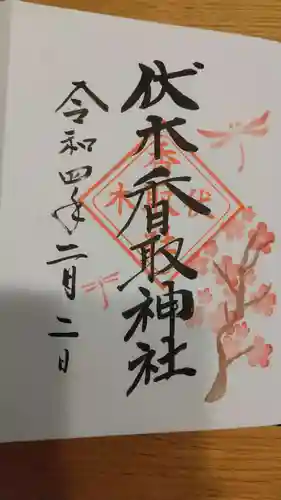 伏木香取神社
令和四年二月二日